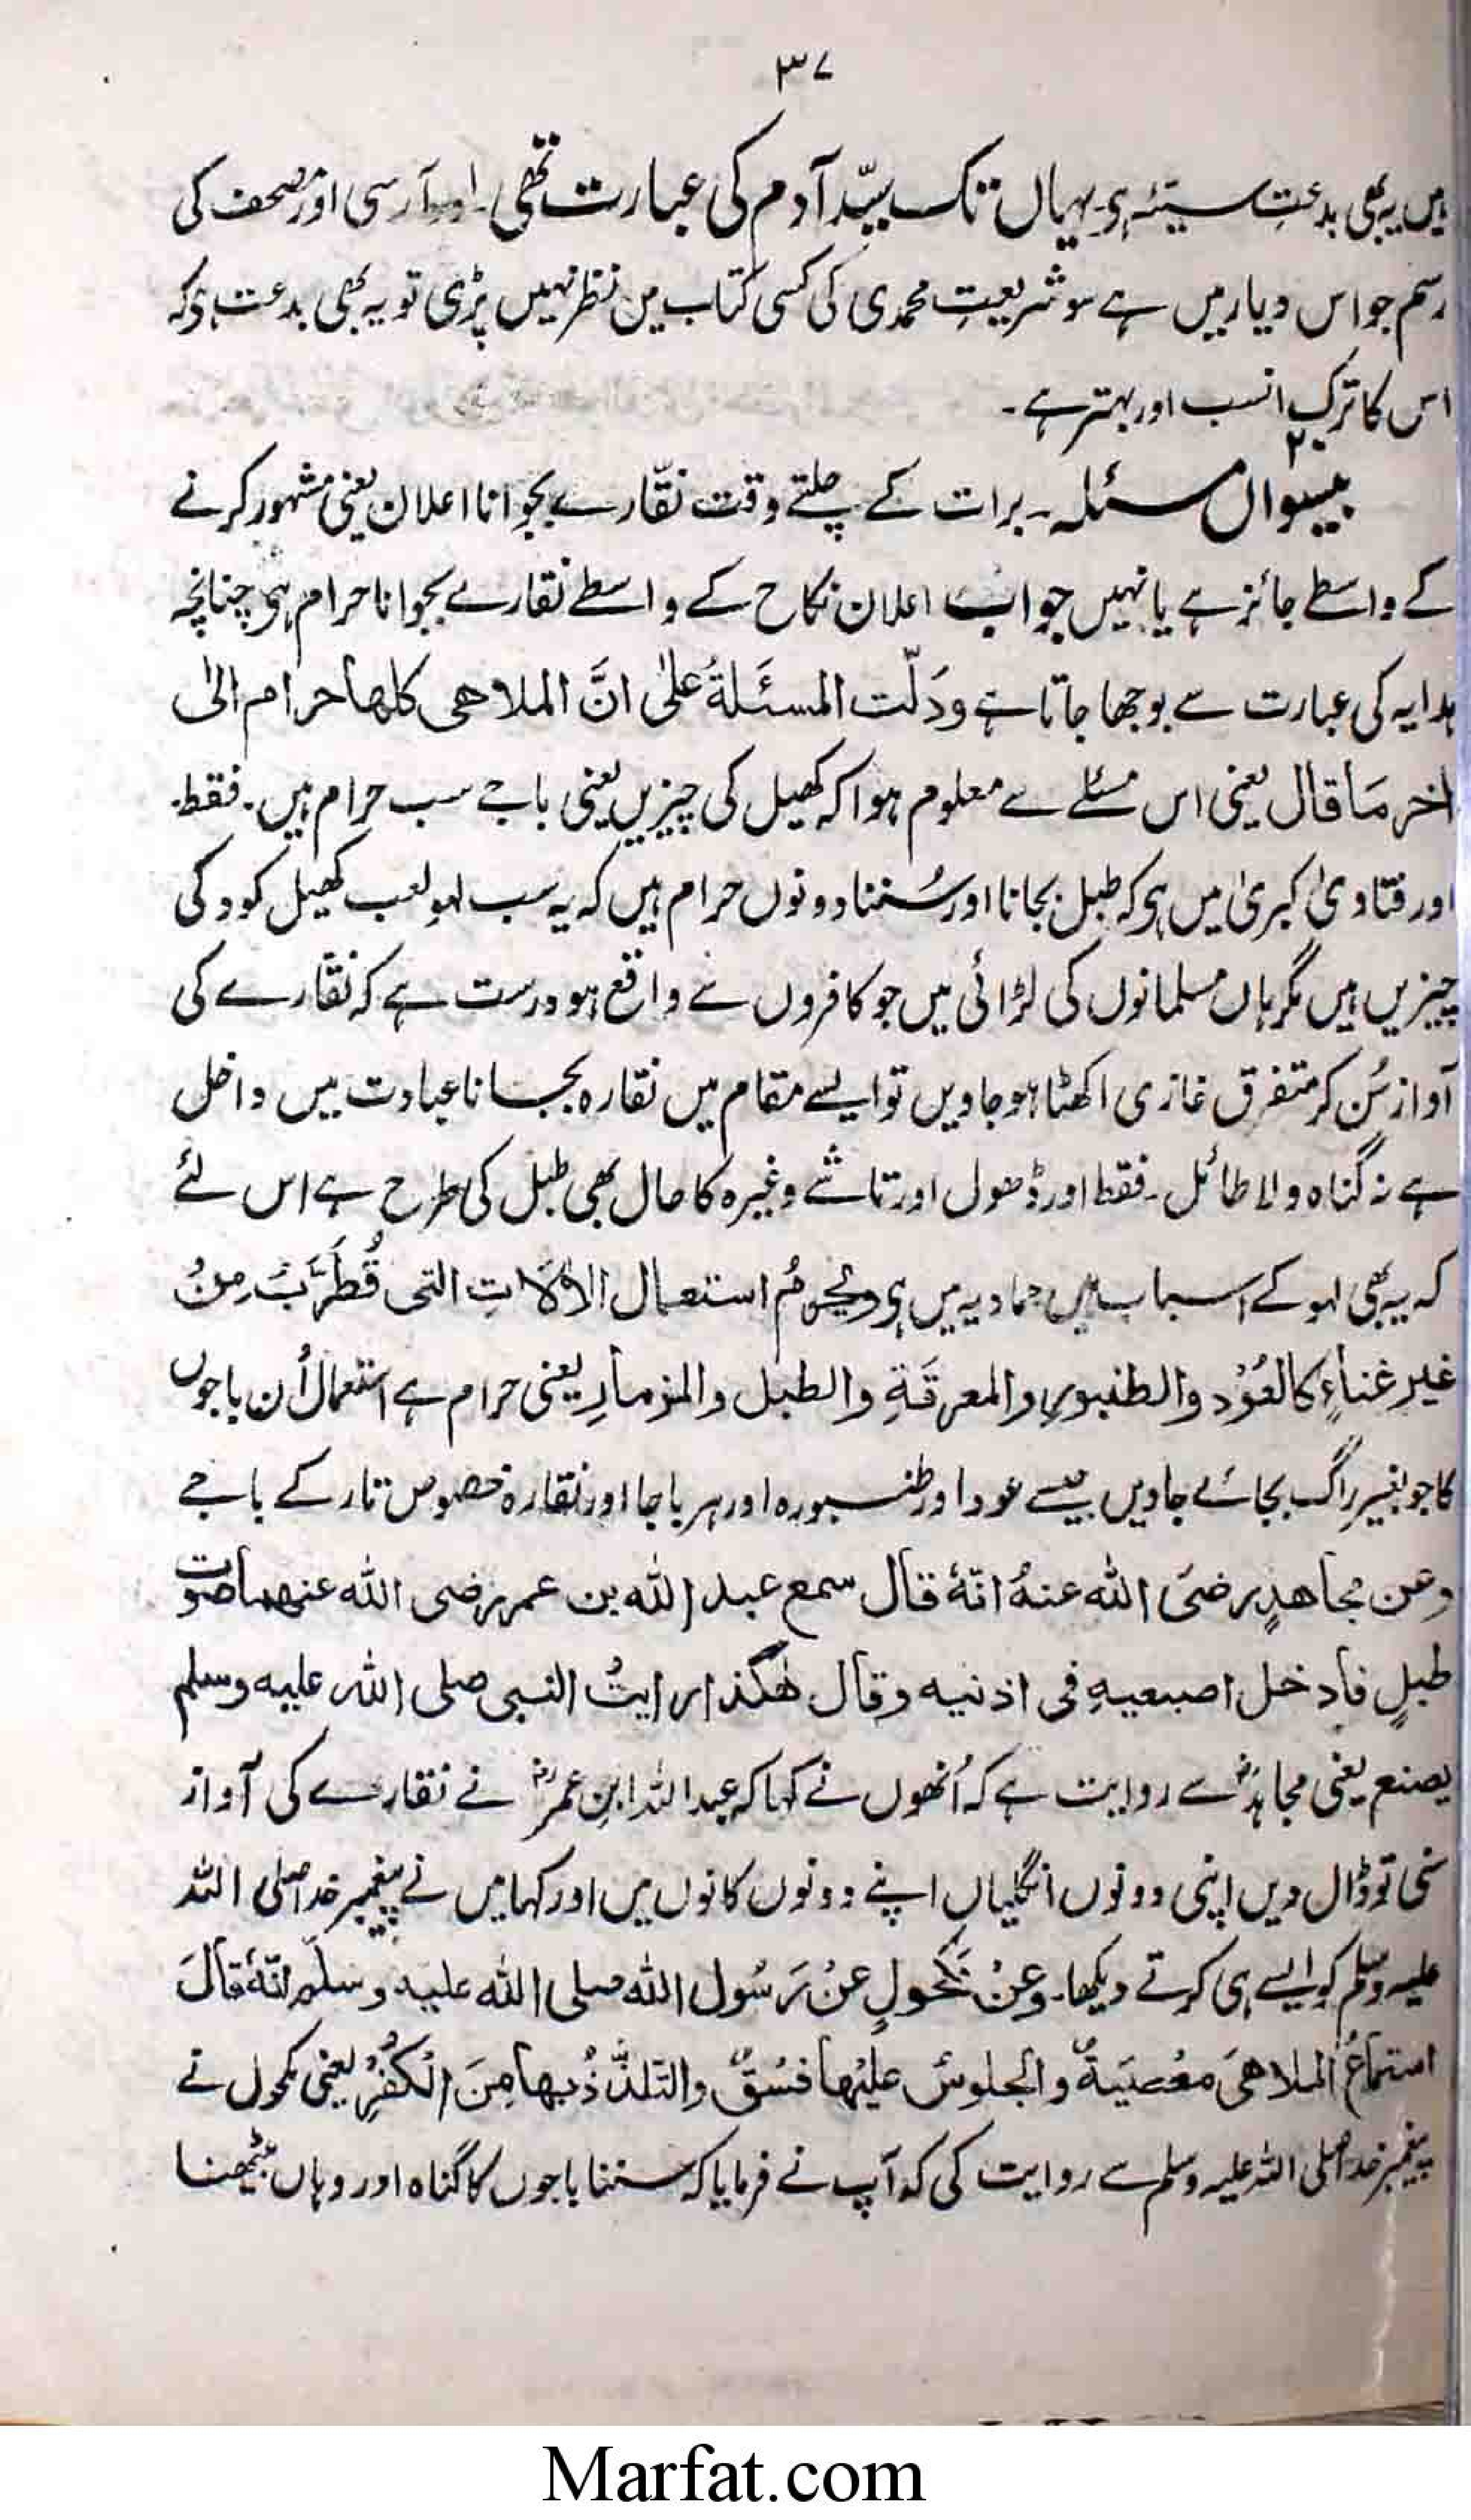 ۳۷
میں یہ بھی بدعتِ سیئہ ہی یہاں تک سیّد آدم کی عبارت تھی۔ اور آرسی اور مصحف کی
رسم جو اس دیار میں ہے سو شریعتِ محمدی کی کسی کتاب مین نظر نہیں پڑی تو یہ بھی بدعت ہی کہ
اس کا ترک انسب اور بہتر ہے۔
۲۰
بیسواں مسئلہ۔ برات کے چلتے وقت نقّارے بجوانا اعلان یعنی مشہور کرنے
کے واسطے جائز ہے یا نہیں جواب اعلان نکاح کے واسطے نقارے بجوانا حرام ہی چنانچہ
ہدایہ کی عبارت سے بوجھا جاتا ہے ودَلّت المسئَلةُ علیٰ انَّ الملاھی کلھا حرام الیٰ
اخر مَا قال یعنی اس مسئلے سے معلوم ہوا کہ کھیل کی چیزیں یعنی باجے سب حرام ہیں۔ فقط۔
اور فتاویٰ کبریٰ میں ہی کہ طبل بجانا اور سُننا دونوں حرام ہیں کہ یہ سب لہو لعب کھیل کود کی
چیزیں ہیں مگر ہاں مسلمانوں کی لڑائی میں جو کافروں سے واقع ہو درست ہے کہ نقّارے کی
آواز سُن کر متفرق غازی اکھٹا ہو جاویں تو ایسے مقام میں نقارہ بجانا عبادت میں داخل
ہے نہ گناہ ولا طائل۔ فقط اور ڈھول اور تاشے وغیرہ کا حال بھی طبل کی طرح ہے اس لئے
کہ یہ بھی لہو کے اسباب ہیں حمادیہ میں ہی ویحرمُ استعمال الاٰلاتِ التی قُطَرَّبُ مِنُ
غیر غناءٍ کالعُوْد والطنبورِ والمعرفَةِ والطبل والمزمارِ یعنی حرام ہے استعمال اُن باجوں
کا جو بغیر راگ بجائے جاویں جیسے عود اور طنبورہ اور ہر باجا اور نقارہ خصوص تار کے باجے
وعن مجاھدٍ رضیَ اللہ عنہُ انّهٗ قال سمع عبد اللہ بن عمر رضی اللہ عنھما صَوت
طبلٍ فادخل اصبعیهِ فی اذنیه وقال ھٰکذا رایتُ النبی صلی اللہ علیه وسلم
یصنع یعنی مجاہدؓ سے روایت ہے کہ اُنھوں نے کہا کہ عبداللہ ابنِ عمرؓ نے نقارے کی آواز
سُنی تو ڈال دیں اپنی دونوں انگلیاں اپنے دونوں کانوں میں اور کہا میں نے پیغمبر خدا صلی اللہ
علیہ وسلم کو ایسے ہی کرتے دیکھا۔ وعَنْ مَکحُولٍ عَنْ رَسُول اللہ صلی اللہ علیہ وسلّم انّهٗ قالَ
استماعُ الملاھیَ معْصیَةٌ والجلوسُ علیْھا فسْقٌ والتلذّذُ بھا مِنَ الْکُفْرِ یعنی مکحول نے
پیغمبر خدا صلی اللہ علیہ وسلم سے روایت کی کہ آپ نے فرمایا کہ سننا باجوں کا گناہ اور وہاں بیٹھنا
Marfat.com